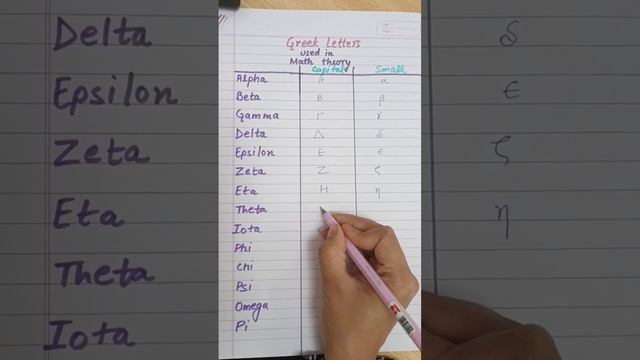 Greek Letters
used in
Math theory
Capital Small
Alpha A α
Beta B β
Gamma Γ γ
Delta Δ δ
Epsilon E ϵ
Zeta Z ζ
Eta H η
Theta
Iota
Phi
Chi
Psi
Omega
Pi
Delta δ
Epsilon ϵ
Zeta ζ
Eta η
Theta
Iota